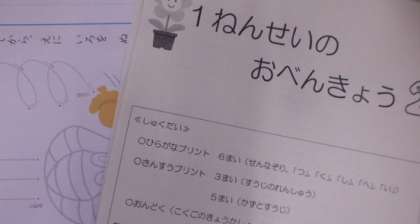 てから、水に いろを ぬ
1ねんせいの
おべんきょう
≪しゅくだい≫
○ひらがなプリント 6まい（せんなぞり、「つ」「く」「し」「へ」「い」）
○きんすうプリント 3まい（すうじのれんしゅう）
5まい（かずとすうじ）
○おんどく（こくごのきょうか